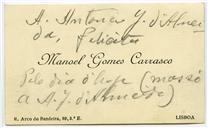 A. Antonio J. d'Almei
da, felicita
Manoel Gomes Carrasco
Pelo dia d'hoje (
a A. J. d'Almeida)
R. Arco da Bandeira, 2.º E.
LISBOA